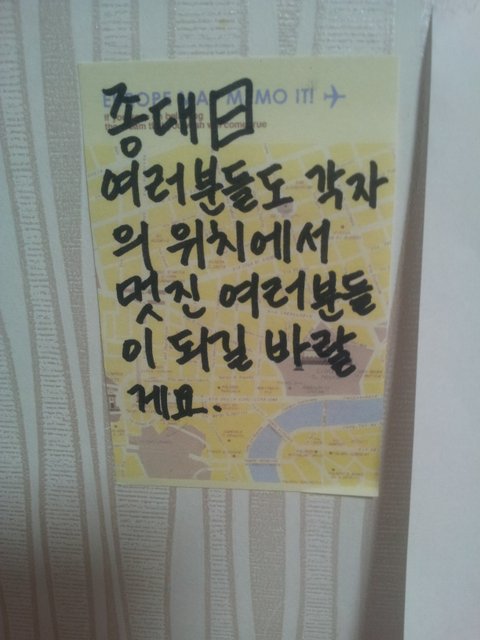 EUROPE MAP MEMO IT!
종대曰
여러분들도 각자
의 위치에서
멋진 여러분들
이 되길 바랄
게요.